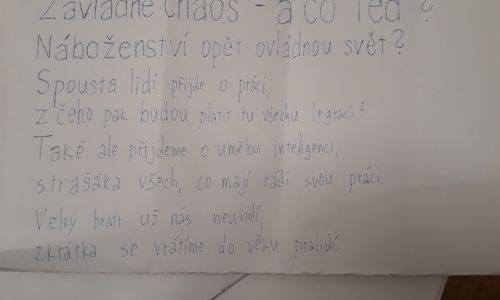 Zavládne chaos - a co teď?
Náboženství opět ovládnou svět?
Spousta lidí přijde o práci,
z čeho pak budou platit tu všechu legraci?
Také ale přijdeme o umělou inteligenci,
strašáka všech, co mají rádi svou práci.
Velký bratr už nás neuvidí,
zkrátka se vrátíme do věku pralidí.